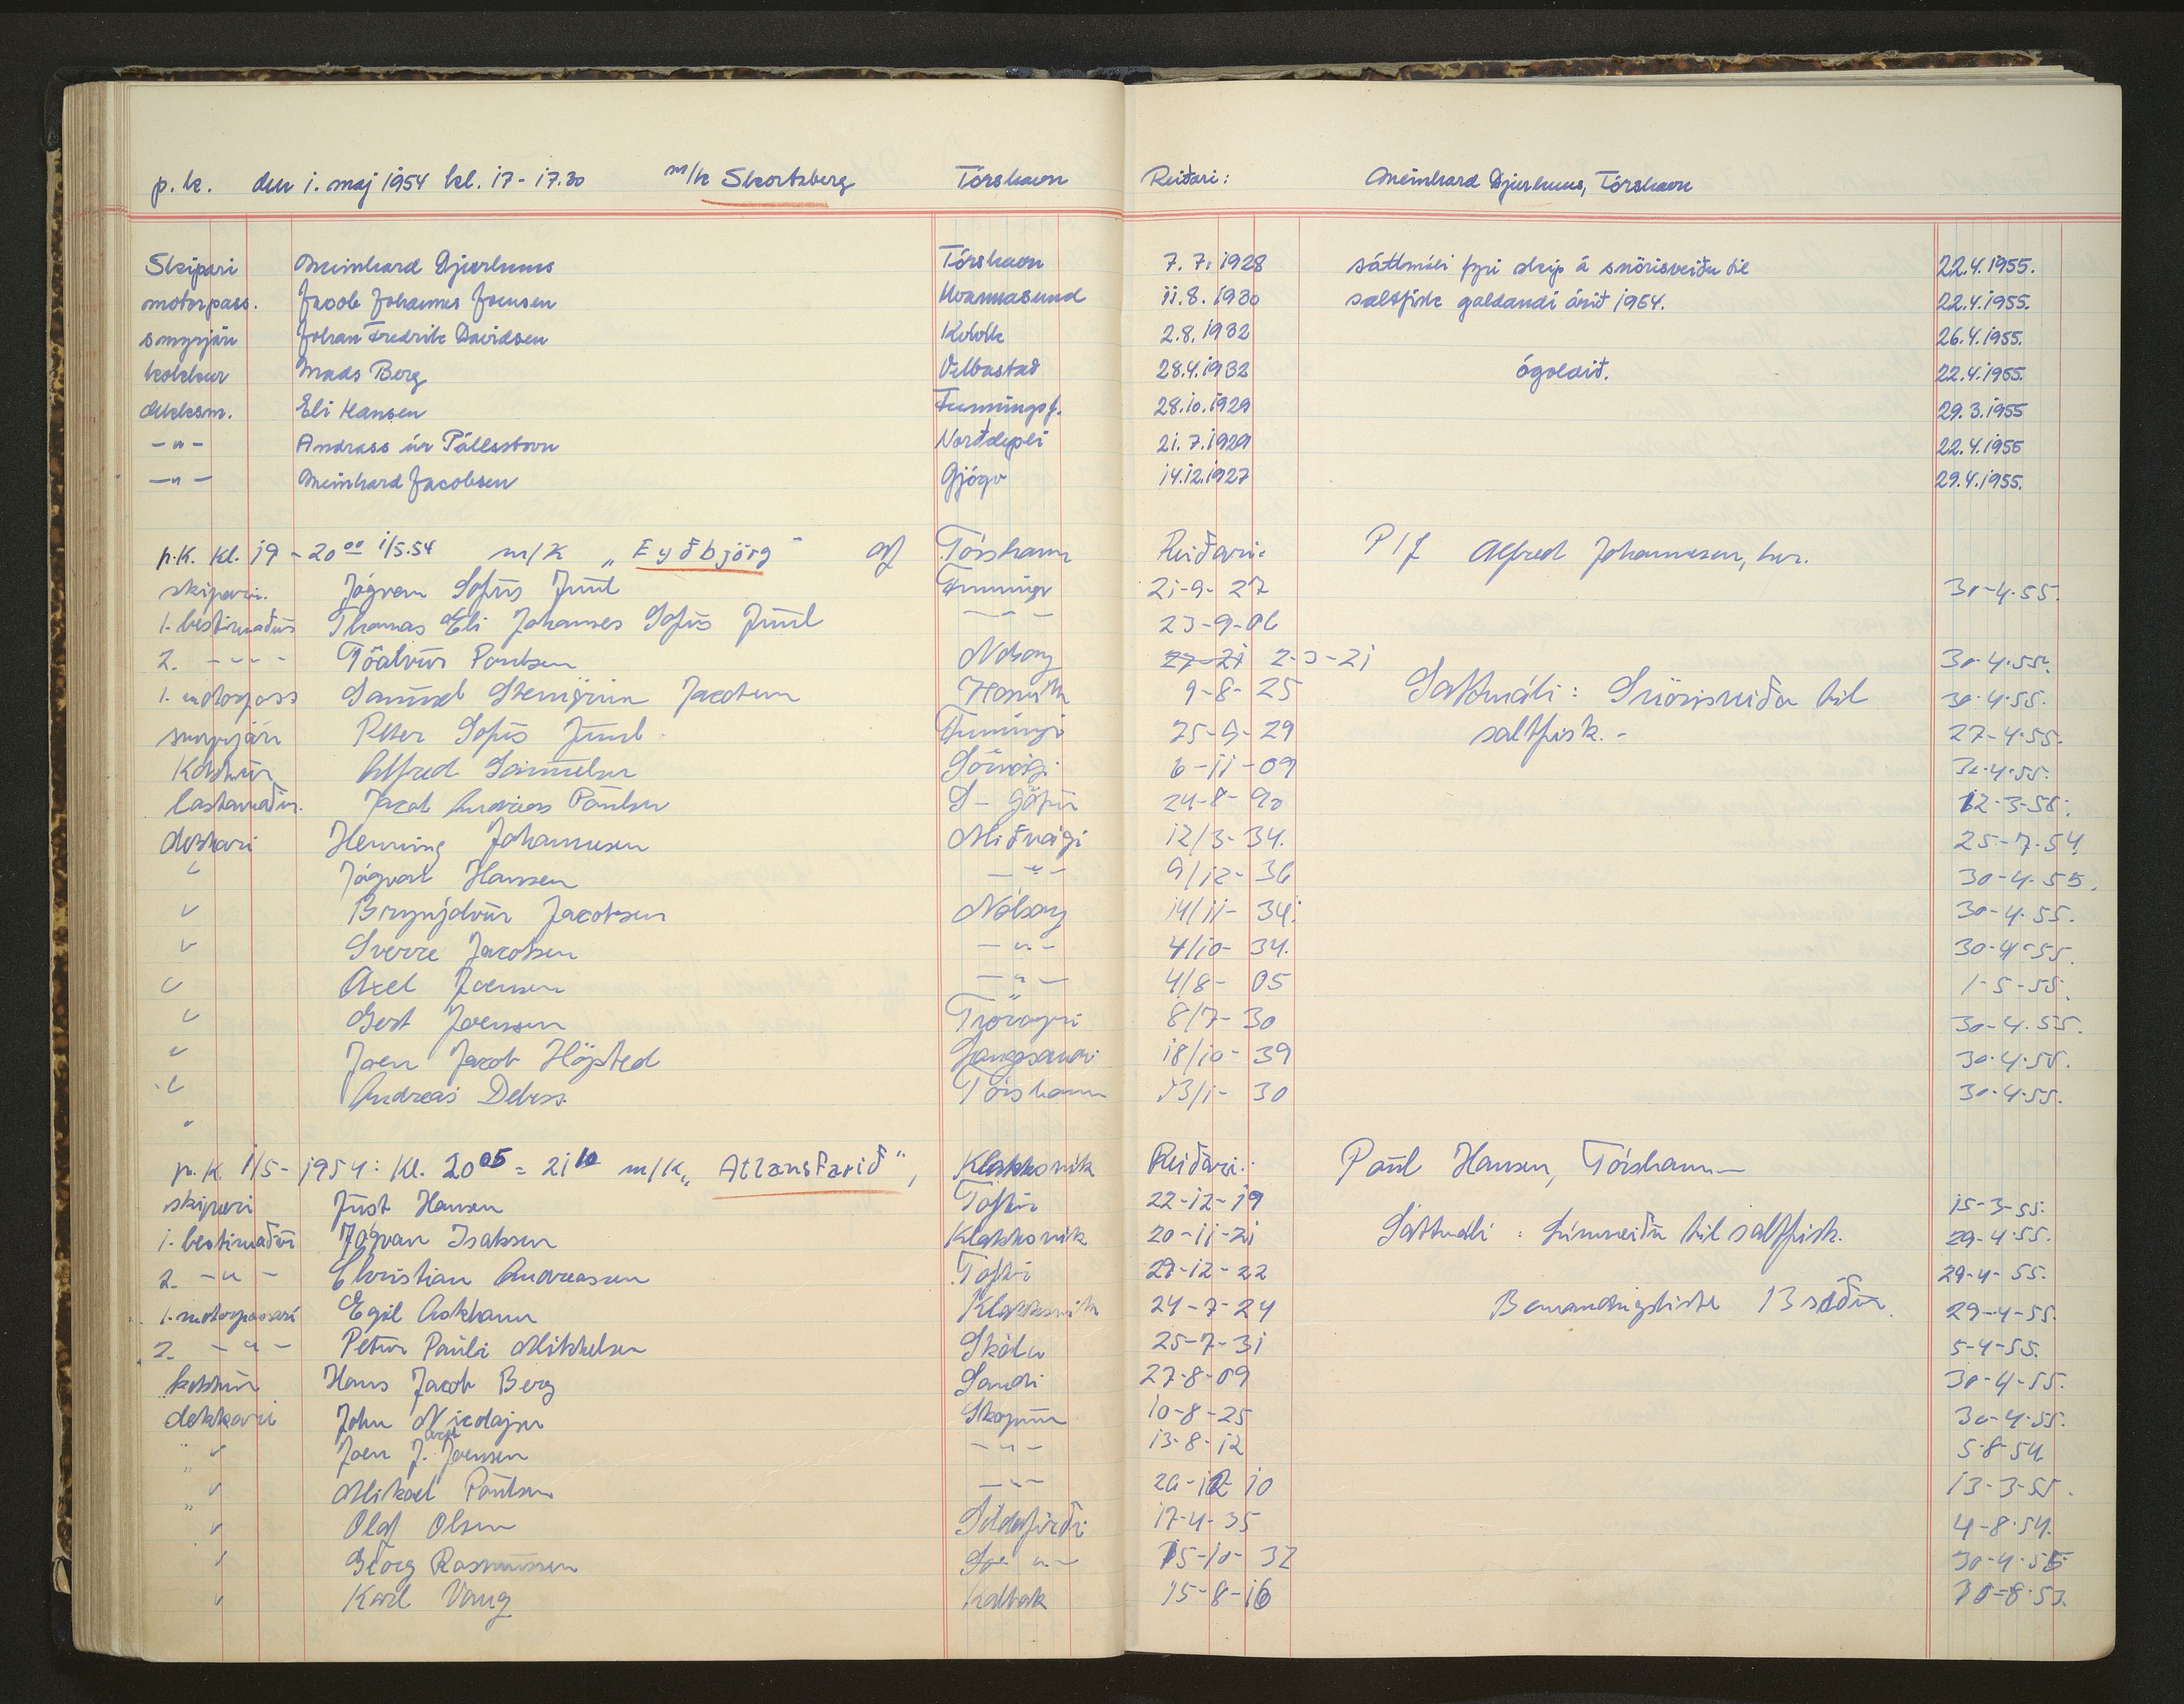 p.k. den 1. maj 1954 kl. 17 - 17.30 m/k Skortsberg Tórshavn Reiðari: Meinhard Djurhuus, Tórshavn
Skipari Meinhard Djurhuus Tórshavn 7.7.1928 sáttmáli fyri skip á snörisveiðu til 22.4.1955.
motorpass. Jacob Johannes Joensen Hvannasund 11.8.1930 saltfisk galdandi árið 1954. 22.4.1955.
smyrjari Johan Fredrik Davidsen 2.8.1932 26.4.1955.
kokkur Mads Berg Velbastað 28.4.1932 ógoldið. 22.4.1955.
dekksm. Eli Hansen Funningsf. 28.10.1929 29.3.1955
-"- Andrass úr Pállsstovu Norðdepli 21.7.1929 22.4.1955
-"- Meinhard Jacobsen Gjógv 14.12.1927 29.4.1955.
p.K. Kl. 19 - 20 00 1/5.54 m/K „Eyðbjörg" af Tórshavn Reiðari: P/f Alfred Johannesen, hvr.
skipari. Jógvan Sofus Juul Funningi 21-9-27 30-4-55.
1. bestimaður Thomas Eli Johannes Sofus Juul - - - 23-9-06
2. - - - - Poulsen Nólsoy 27-21 2-3-21 30-4-55.
1. motorpass Samuel Steingrim Jacobsen 9-8-25 Sáttmáli: Snörisveiða til 30-4-55.
smyrjari Peter Sofus Juul Funningi 25-9-29 saltfisk. - 27-4-55.
Kokkur Alfred Samuelsen Sörvági 6-11-09 30-4-55.
lastamaður. Jacob Andrias Poulsen S- Gøtu 24-8-90 12-3-55.
dekkari Henning Johannesen Miðvági 12/3-34. 25-7-54
" Jógvan Hansen -"- 9/12-36 30-4-55.
" Brynjolvur Jacobsen Nólsoy 14/11-34. 30-4-55.
" Sverre Jacobsen -"- 4/10-34. 30-4-55.
" Axel Joensen -"- 4/8-05 1-5-55.
" Gert Joensen 8/7-30 30-4-55.
" Joen Jacob Højsted Langasandi 18/10-39 30-4-55.
" Andreas Debess Tórshavn 13/1-30 30-4-55.
"
p.K. 1/5-1954: Kl. 20 05 - 21 10 m/K „Atlansfarið", Klakksvík Reiðari: Poul Hansen, Tórshavn
skipari Just Hansen Toftir 22-12-19 15-3-55.
1. bestimaður Jógvan Isaksen Klakksvík 20-11-21 Sáttmáli: Línuveiðu til saltfisk. 29-4-55.
2. -"- Christian Andreassen Toftir 29-12-22 29-4-55.
1. motorpassari Egil Askham Klakksvík 24-7-24 Bemandingsliste 13 29-4-55.
2. -"- Petur Pauli Mikkelsen Skála 25-7-31 5-4-55.
kokkur Hans Jacob Berg Sandi 27-8-09 30-4-55.
dekkari John Nicolajsen Skopun 10-8-25 30-4-55.
" Joen J. Joensen -"- 13-8-12 5-8-54
" Mikael Poulsen -"- 13-3-55.
" Olaf Olsen Söldafirði 17-4-35 4-8-54.
" Georg Rasmussen 15-10-32 30-4-55
" Karl Vang Kaldbak 15-8-16 10-8-53.